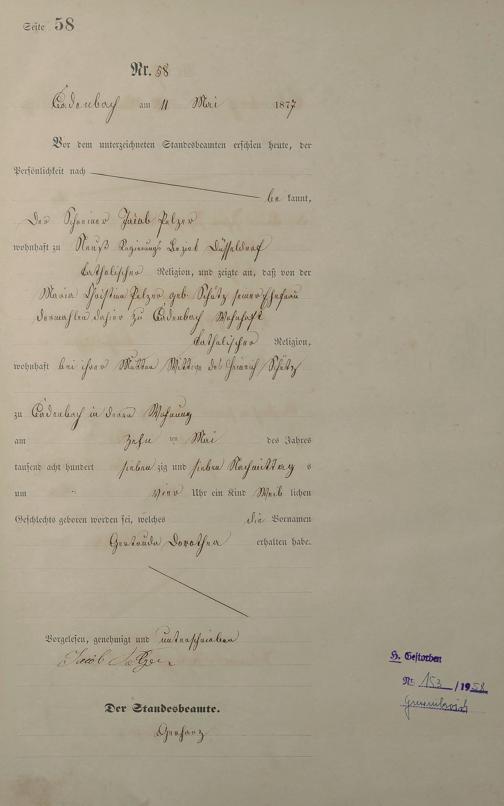 Seite 58
Nr. 58
Cadenbach am 11 Mai 1877
Vor dem unterzeichneten Standesbeamten erschien heute, der
Persönlichkeit nach
be kannt,
Der Schreiner Jacob Pelzer
wohnhaft zu Neuß Regierungs Bezirk Düsseldorf
Catholischer Religion, und zeigte an, daß von der
Maria Christina Pelzer geb. Schütz seiner Ehefrau
dermahlen dahier zu Cadenbach Wohnhaft
Catholischer Religion,
wohnhaft bei ihrer Mutter Wittwe des Heinrich Schütz
zu Cadenbach in deren Wohnung
am zehn ten Mai des Jahres
tausend acht hundert sieben zig und sieben Nachmittag s
um vier Uhr ein Kind Weib lichen
Geschlechts geboren worden sei, welches die Vornamen
Gertruda Dorothea erhalten habe.
Vorgelesen, genehmigt und unterschrieben
Jacob Pelzer
Der Standesbeamte.
Gerharz
H. Gestorben
Nr. 153 /1958